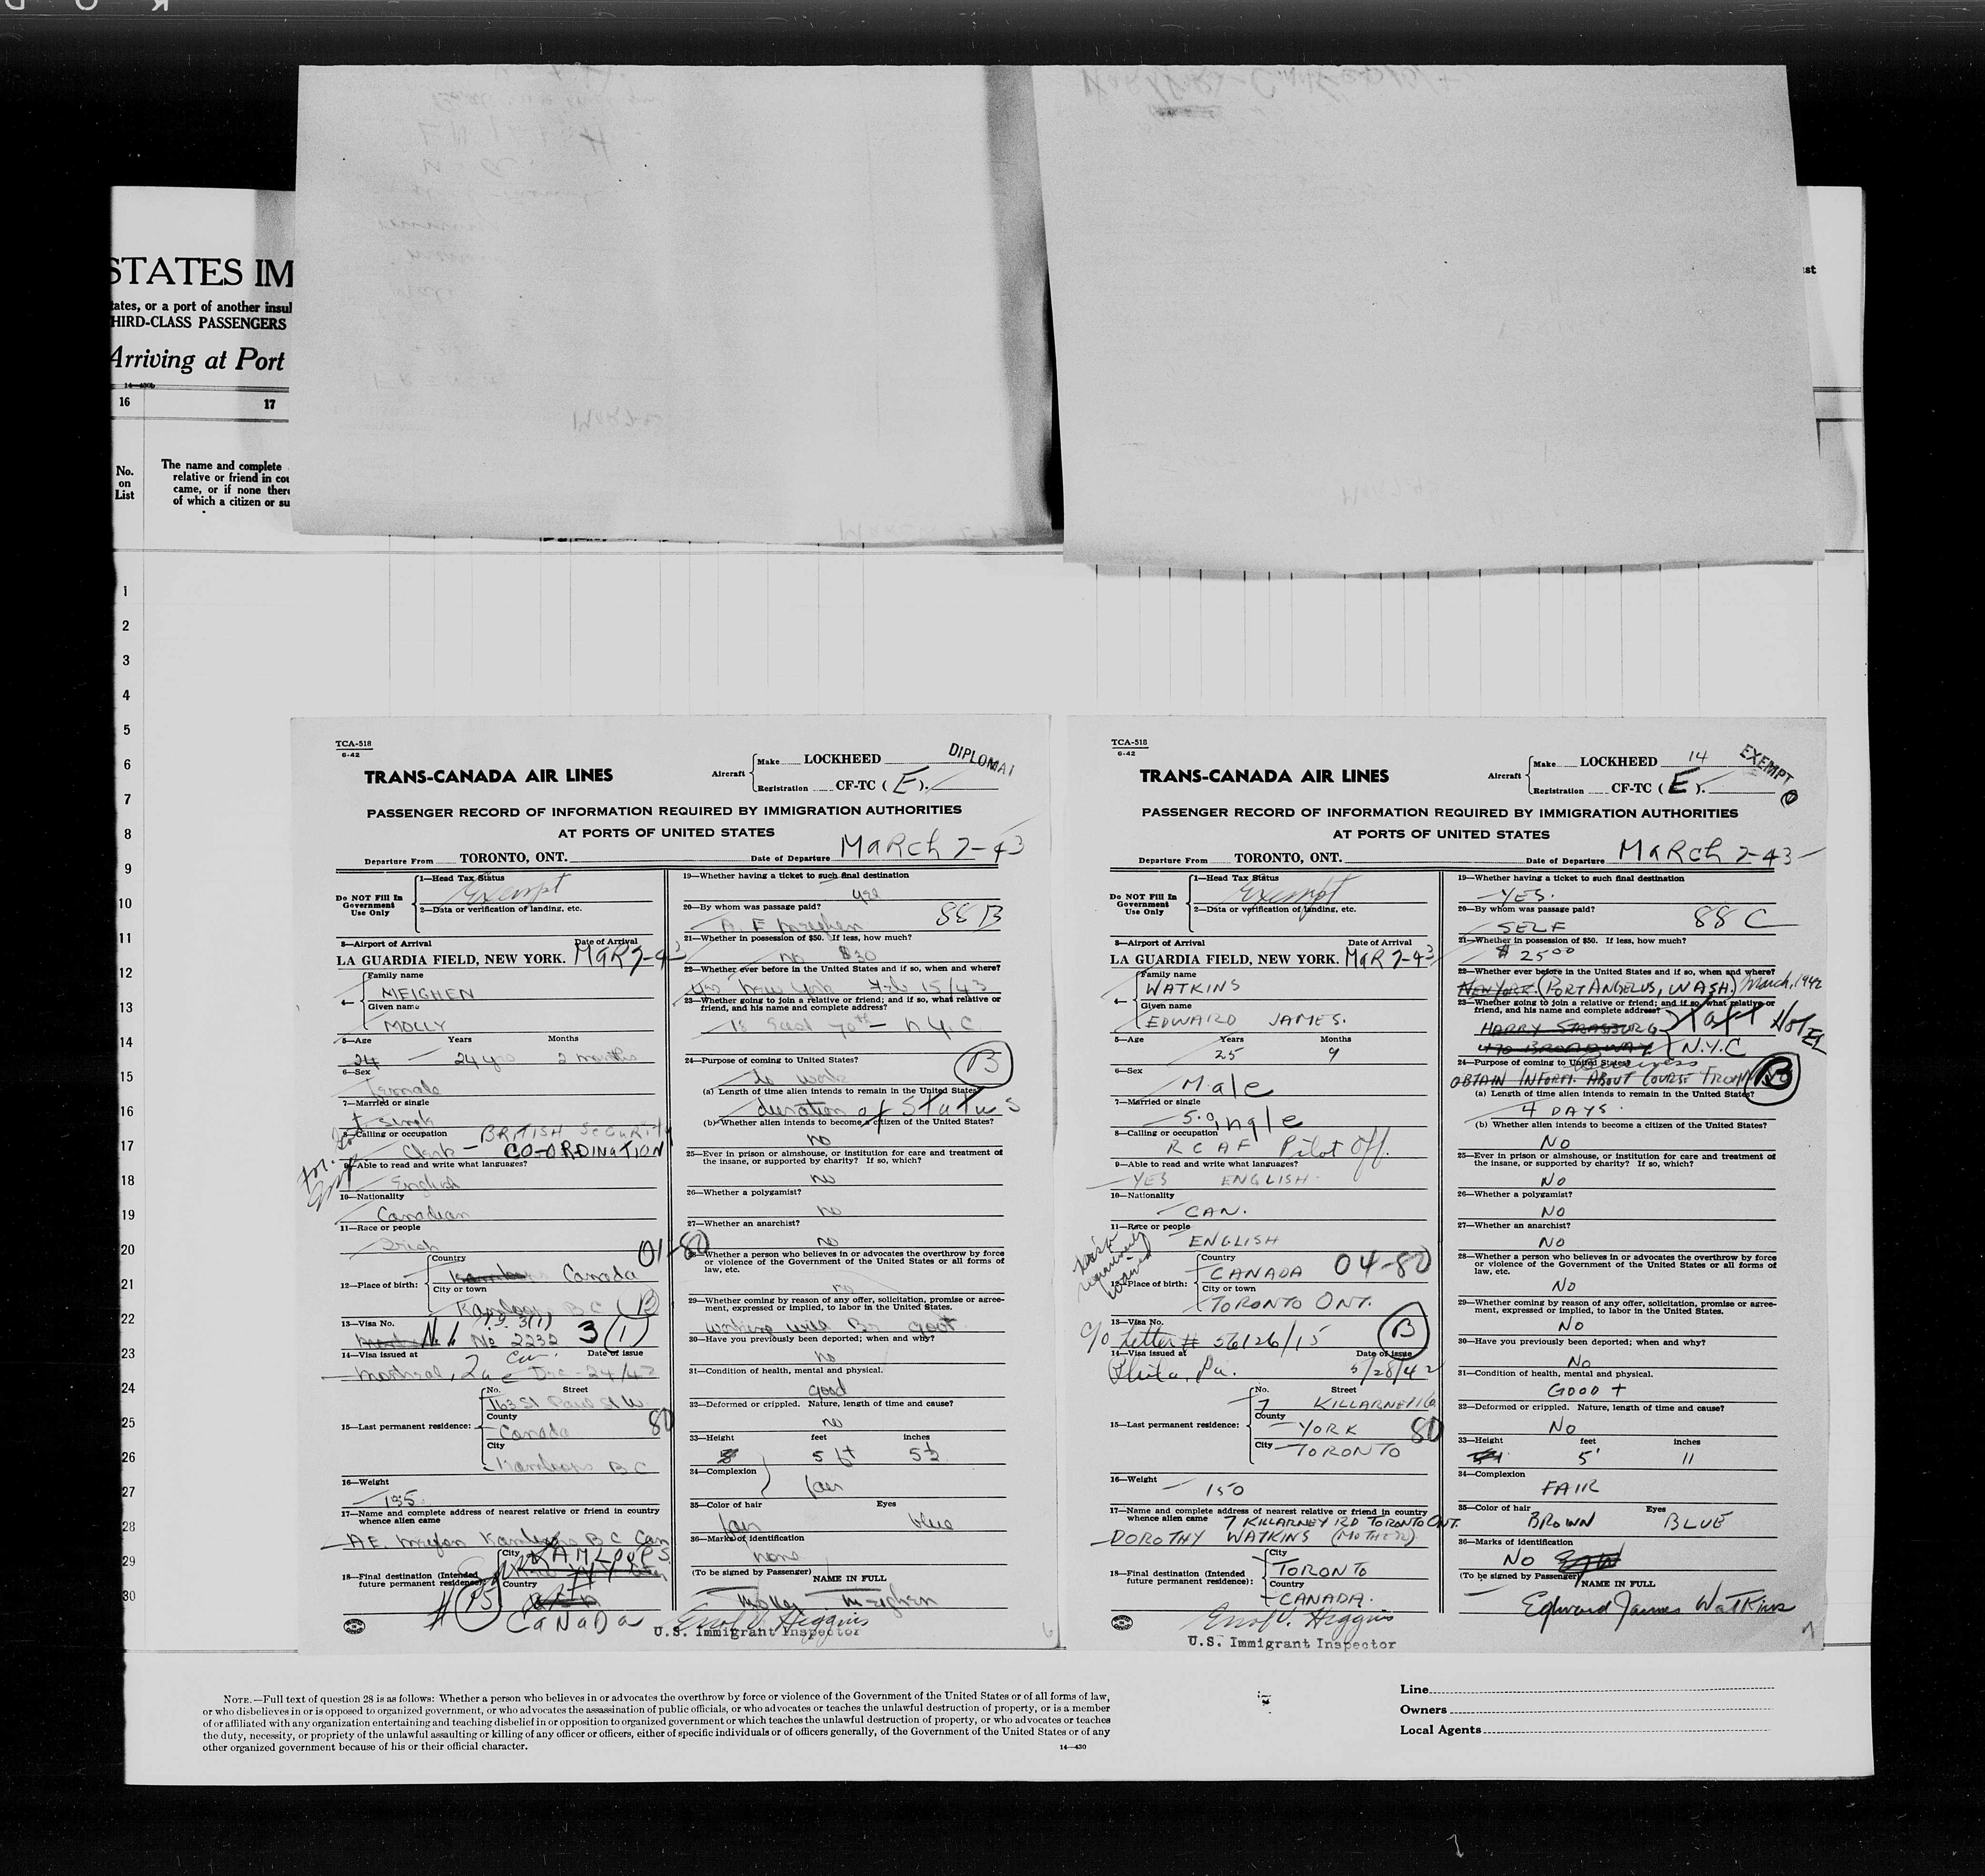 STATES IM
tates, or a port of another insul
HIRD-CLASS PASSENGERS
Arriving at Port
14—430b
16 17
No.
on
List
The name and complete
relative or friend in cou
came, or if none there
of which a citizen or su
st
1
2
3
4
5
6
7
8
9
10
11
12
13
14
15
16
17
18
19
20
21
22
23
24
25
26
27
28
29
30
TCA-518
6-42
TRANS-CANADA AIR LINES
Aircraft
Make LOCKHEED
Registration CF-TC (E).
DIPLOMAT
PASSENGER RECORD OF INFORMATION REQUIRED BY IMMIGRATION AUTHORITIES
AT PORTS OF UNITED STATES
Departure From TORONTO, ONT. Date of Departure MARCH 7-43
Do NOT Fill In
Government
Use Only
1—Head Tax Status
Exempt
2—Data or verification of landing, etc.
3—Airport of Arrival Date of Arrival
LA GUARDIA FIELD, NEW YORK. MAR 7-43
4—
Family name
MEIGHEN
Given name
MOLLY
5—Age Years Months
24 24 yrs 2 months
6—Sex
female
7—Married or single
single
8—Calling or occupation BRITISH SECURITY
Clerk — CO-ORDINATION
9—Able to read and write what languages?
English
10—Nationality
Canadian
11—Race or people
Irish
01-80
12—Place of birth:
Country
Canada
City or town
Kamloops BC (B)
13—Visa No. 3(1)
No 2232 3(1)
14—Visa issued at Date of issue
Montreal, Que Dec-24/42
15—Last permanent residence:
No. Street
163 St Paul St W
County
Canada 80
City
Kamloops BC
16—Weight
135
17—Name and complete address of nearest relative or friend in country
whence alien came
A E Meighen Kamloops BC Can
18—Final destination (Intended
future permanent residence):
City KAMLOOPS
Country
CANADA
19—Whether having a ticket to such final destination
yes
20—By whom was passage paid? 88 B
A. E Meighen
21—Whether in possession of $50. If less, how much?
no $30
22—Whether ever before in the United States and if so, when and where?
yes New York Feb 15/43
23—Whether going to join a relative or friend; and if so, what relative or
friend, and his name and complete address?
18 East 70th — N.Y.C
24—Purpose of coming to United States? (B)
to work
(a) Length of time alien intends to remain in the United States?
duration of Status
(b) Whether alien intends to become a citizen of the United States?
no
25—Ever in prison or almshouse, or institution for care and treatment of
the insane, or supported by charity? If so, which?
no
26—Whether a polygamist?
no
27—Whether an anarchist?
no
28—Whether a person who believes in or advocates the overthrow by force
or violence of the Government of the United States or all forms of
law, etc.
no
29—Whether coming by reason of any offer, solicitation, promise or agree-
ment, expressed or implied, to labor in the United States.
working with Br govt
30—Have you previously been deported; when and why?
no
31—Condition of health, mental and physical.
good
32—Deformed or crippled. Nature, length of time and cause?
no
33—Height feet inches
5 ft 5½
34—Complexion
fair
35—Color of hair Eyes
fair blue
36—Marks of identification
none
(To be signed by Passenger) NAME IN FULL
Molly Meighen
Errol V. Higgins
U.S. Immigrant Inspector
TCA-518
6-42
TRANS-CANADA AIR LINES
Aircraft
Make LOCKHEED 14
Registration CF-TC (E).
EXEMPT
PASSENGER RECORD OF INFORMATION REQUIRED BY IMMIGRATION AUTHORITIES
AT PORTS OF UNITED STATES
Departure From TORONTO, ONT. Date of Departure MARCH 7-43
Do NOT Fill In
Government
Use Only
1—Head Tax Status
Exempt
2—Data or verification of landing, etc.
3—Airport of Arrival Date of Arrival
LA GUARDIA FIELD, NEW YORK. MAR 7-43
4—
Family name
WATKINS
Given name
EDWARD JAMES.
5—Age Years Months
25 9
6—Sex
Male
7—Married or single
Single
8—Calling or occupation
RCAF Pilot Off.
9—Able to read and write what languages?
YES ENGLISH
10—Nationality
CAN.
11—Race or people
ENGLISH
12—Place of birth:
Country
CANADA 04-80
City or town
TORONTO ONT.
13—Visa No. (B)
c/o Letter # 56126/15
14—Visa issued at Date of issue
Phila, Pa. 5/28/42
15—Last permanent residence:
No. Street
7 KILLARNEY
County
YORK 80
City TORONTO
16—Weight
150
17—Name and complete address of nearest relative or friend in country
whence alien came 7 KILLARNEY RD TORONTO ONT.
DOROTHY WATKINS (MOTHER)
18—Final destination (Intended
future permanent residence):
City
TORONTO
Country
CANADA.
19—Whether having a ticket to such final destination
YES.
20—By whom was passage paid? 88 C
SELF
21—Whether in possession of $50. If less, how much?
$ 25.00
22—Whether ever before in the United States and if so, when and where?
NEW YORK (PORT ANGELUS, WASH.) March, 1942
23—Whether going to join a relative or friend; and if so, what relative or
friend, and his name and complete address? Taft HOTEL
HARRY STRASBURG
470 BROADWAY N.Y.C
24—Purpose of coming to United States? Business
OBTAIN INFORM. ABOUT COURSE FROM (B)
(a) Length of time alien intends to remain in the United States?
4 DAYS.
(b) Whether alien intends to become a citizen of the United States?
NO
25—Ever in prison or almshouse, or institution for care and treatment of
the insane, or supported by charity? If so, which?
NO
26—Whether a polygamist?
NO
27—Whether an anarchist?
NO
28—Whether a person who believes in or advocates the overthrow by force
or violence of the Government of the United States or all forms of
law, etc.
NO
29—Whether coming by reason of any offer, solicitation, promise or agree-
ment, expressed or implied, to labor in the United States.
NO
30—Have you previously been deported; when and why?
No
31—Condition of health, mental and physical.
GOOD +
32—Deformed or crippled. Nature, length of time and cause?
NO
33—Height feet inches
5' 11
34—Complexion
FAIR
35—Color of hair Eyes
BROWN BLUE
36—Marks of identification
NO
(To be signed by Passenger) NAME IN FULL
Edward James Watkins
Errol V. Higgins
U.S. Immigrant Inspector
NOTE.—Full text of question 28 is as follows: Whether a person who believes in or advocates the overthrow by force or violence of the Government of the United States or of all forms of law,
or who disbelieves in or is opposed to organized government, or who advocates the assassination of public officials, or who advocates or teaches the unlawful destruction of property, or is a member
of or affiliated with any organization entertaining and teaching disbelief in or opposition to organized government or which teaches the unlawful destruction of property, or who advocates or teaches
the duty, necessity, or propriety of the unlawful assaulting or killing of any officer or officers, either of specific individuals or of officers generally, of the Government of the United States or of any
other organized government because of his or their official character.
14—430
Line
Owners
Local Agents